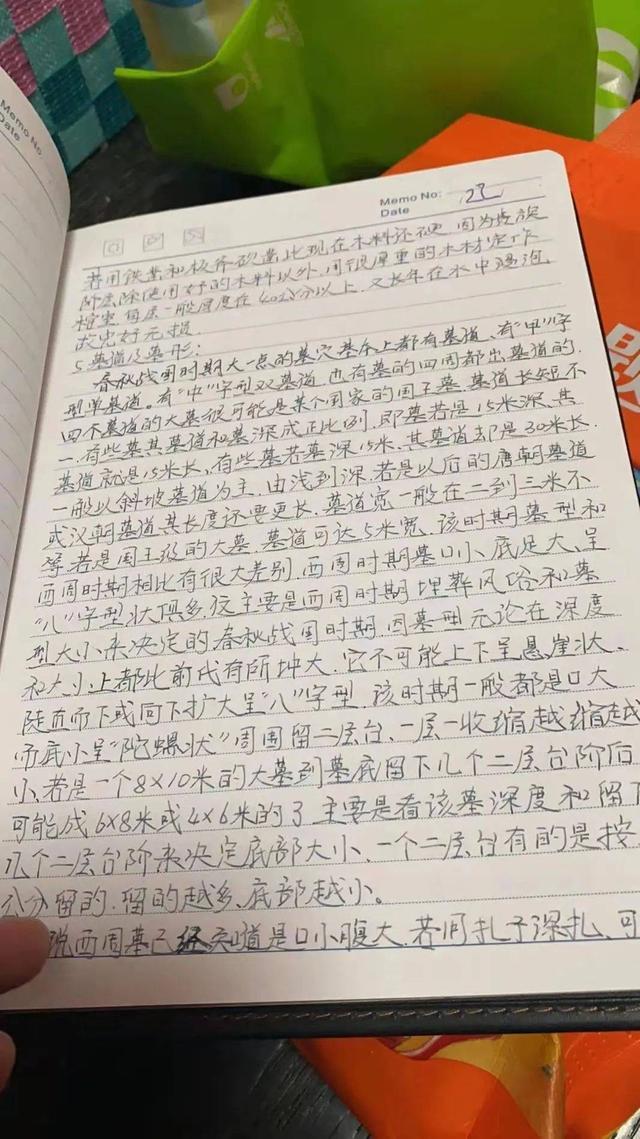 Memo No
Date
Memo No: 23
Date
若用铁凿和板斧砍凿比现在木料还硬,因为贵族
阶层除使用好的木料以外,用很厚重的木材定作
椁室,每层一般厚度在40公分以上,又长年在水中浸泡
故完好无损.
5.墓道及墓形:
春秋战国时期大一点的墓穴基本上都有墓道、有“甲”字
型单墓道。有“中”字型双墓道,也有墓的四周都出墓道的.
四个墓道的大墓很可能是某个国家的国王墓,墓道长短不
一.有些墓其墓道和墓深成正比例.即墓若是15米深、其
墓道就是15米长、有些墓若墓深15米、其墓道却是30米长.
一般以斜坡墓道为主.由浅到深.若是以后的唐朝墓道
或汉朝墓道.其长度还要更长.墓道宽一般在二到三米不
等.若是国王级的大墓.墓道可达5米宽.该时期墓型和
西周时期相比有很大差别.西周时期墓口小、底足大、呈
“八”字型状俱多.这主要是西周时期埋葬风俗和墓
型大小来决定的.春秋战国时期.因墓型无论在深度
和大小上都比前代有所增大.它不可能上下呈悬崖状、
陡直而下或向下扩大呈“八”字型.该时期一般都是口大
而底小呈“陀螺状”周围留二层台.一层一收缩越缩越
小.若是一个8×10米的大墓到墓底留下几个二层台阶后
可能成6×8米或4×6米的了.主要是看该墓深度和留下
几个二层台阶来决定底部大小.一个二层台有的是按
公分留的.留的越多、底部越小。
说西周墓已经知道是口小腹大.若间扎予深扎、可